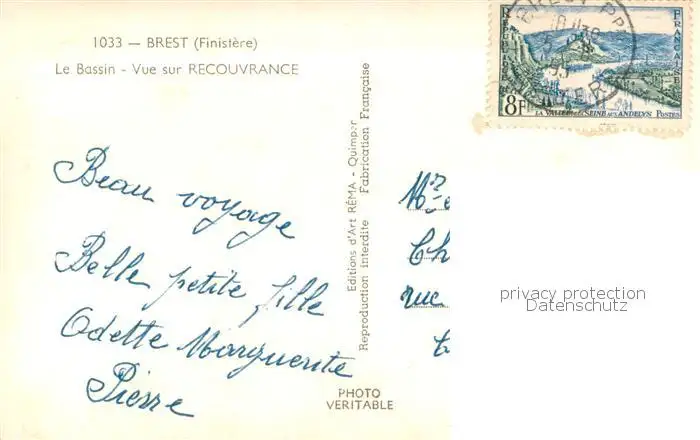 1033 — BREST (Finistère)
Le Bassin - Vue sur RECOUVRANCE
Beau voyage
Belle petite fille
Odette Marguerite
Pierre
Editions d'Art RÉMA - Quimper
Reproduction interdite Fabrication Française
PHOTO
VERITABLE
RÉPUBLIQUE
FRANÇAISE
8F
LA VALLÉE DE LA SEINE AUX ANDELYS POSTES
Ch
rue
privacy protection
Datenschutz